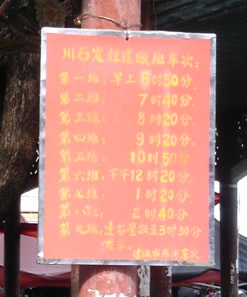 川石发往建瓯班车次:
第一班:早上6时50分.
第二班: 7时40分.
第三班: 8时20分.
第四班: 9时20分.
第五班: 10时50分
第六班:下午12时20分.
第七班: 1时20分.
第八班: 2时40分.
第九班: 至3时30分